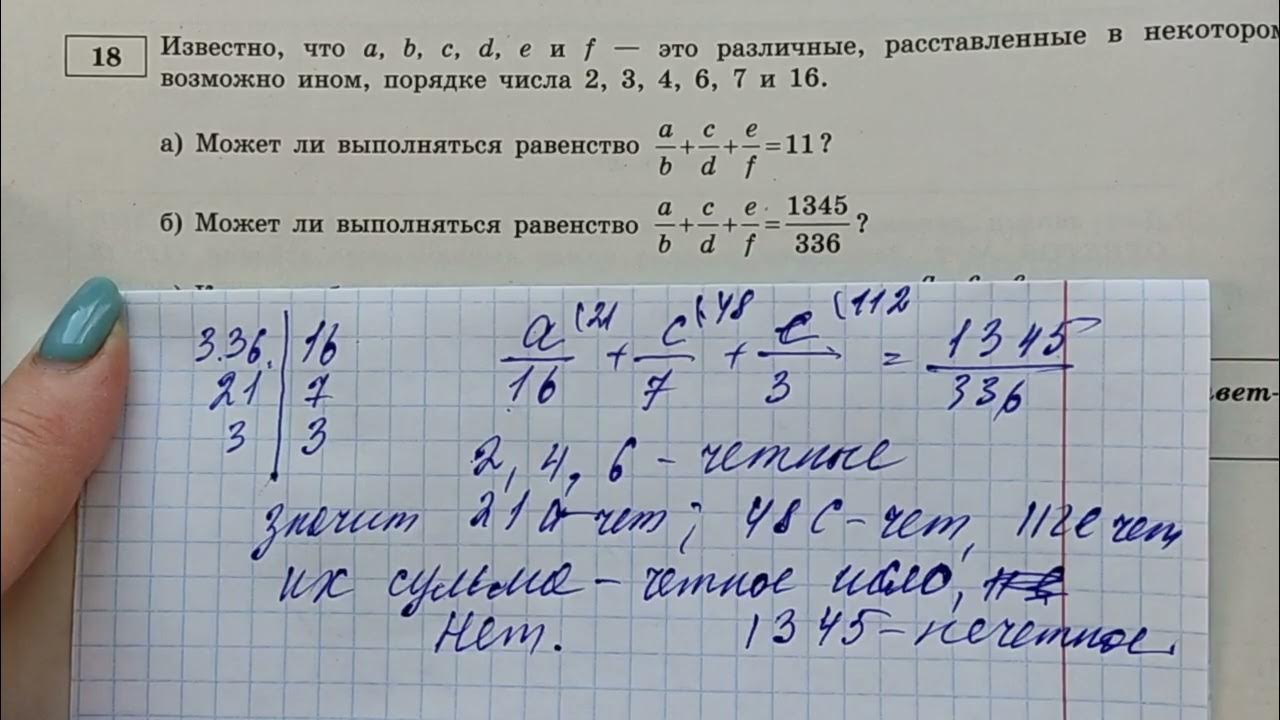 18 Известно, что a, b, c, d, e и f — это различные, расставленные в некотором
возможно ином, порядке числа 2, 3, 4, 6, 7 и 16.
а) Может ли выполняться равенство a/b + c/d + e/f = 11?
б) Может ли выполняться равенство a/b + c/d + e/f = 1345/336?
336 | 16
21 | 7
3 | 3
a/16 (21 + c/7 (48 + e/3 (112 = 1345/336
2, 4, 6 - четные
значит 21a чет; 48c - чет, 112e чет
их сумма - четное число,
Нет. 1345 - нечетное.
вет-